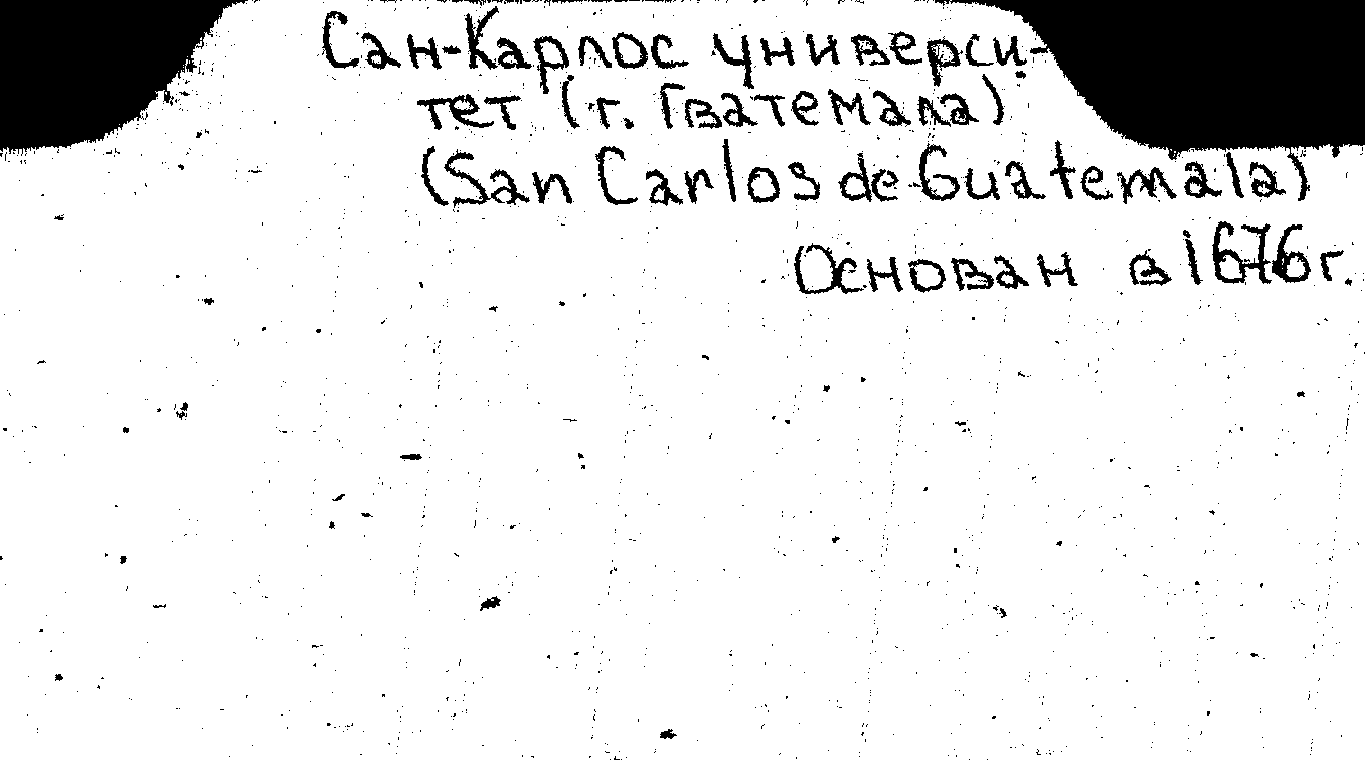 Сан-Карлос универси-
тет (г. Гватемала)
(San Carlos de Guatemala)
Основан в 1676 г.